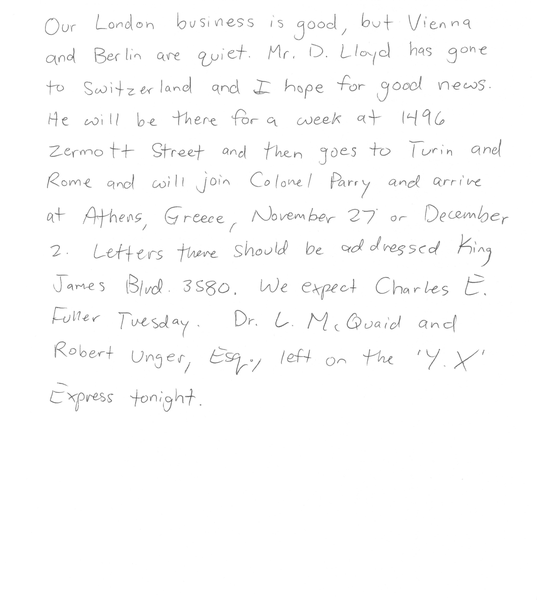 Our London business is good, but Vienna
and Berlin are quiet. Mr. D. Lloyd has gone
to Switzerland and I hope for good news.
He will be there for a week at 1496
Zermott Street and then goes to Turin and
Rome and will join Colonel Parry and arrive
at Athens, Greece, November 27 or December
2. Letters there should be addressed King
James Blvd. 3580. We expect Charles E.
Fuller Tuesday. Dr. L. McQuaid and
Robert Unger, Esq., left on the 'Y.X'
Express tonight.